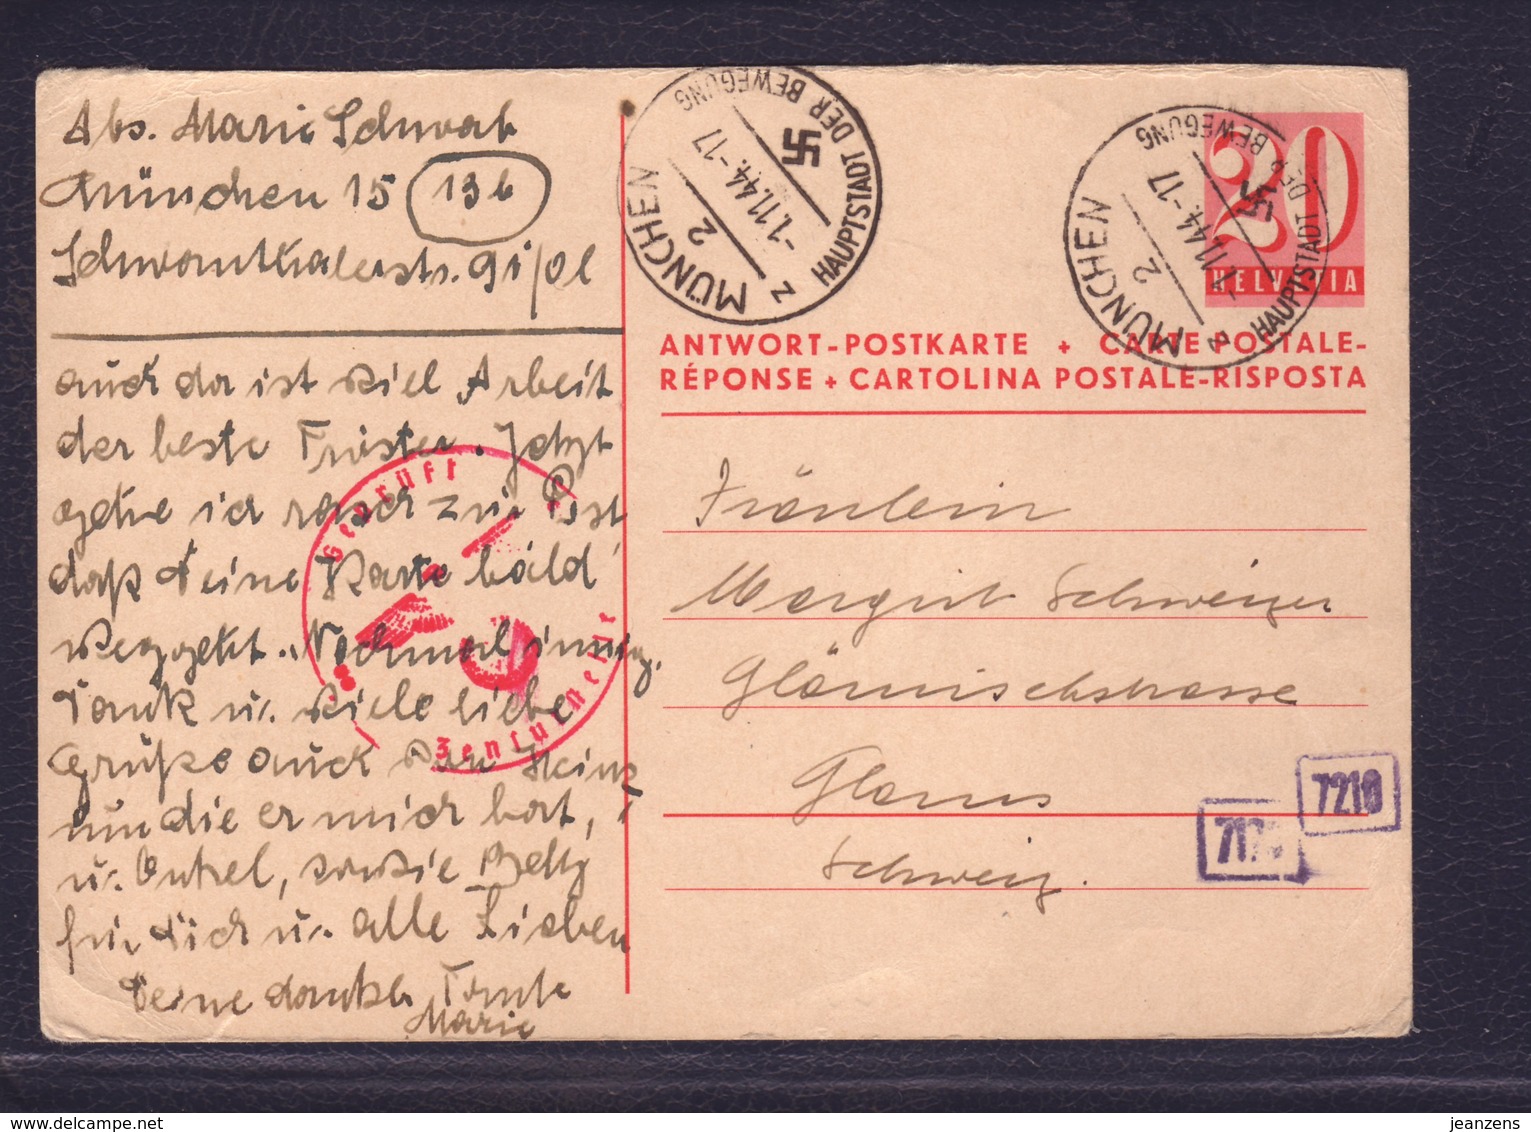 Abs. Marie Schwab
München 15 (13b)
Schwanthalerstr. 91/0l
auch da ist viel Arbeit
der beste Tröster. Jetzt
gehe ich rasch zur Post
daß Deine Karte bald
weggeht. Nochmal innig.
Dank u. viele liebe
Grüße auch von Heinz
um die er mich bat,
u. Onkel, sowie Betty
für Dich u. alle Lieben
Deine dankb. Tante
Marie
MÜNCHEN 2
-1.11.44.-17
z
HAUPTSTADT DER BEWEGUNG
MÜNCHEN 2
-1.11.44.-17
z
HAUPTSTADT DER BEWEGUNG
20
HELVETIA
ANTWORT-POSTKARTE + CARTE POSTALE-
RÉPONSE + CARTOLINA POSTALE-RISPOSTA
Fräulein
Margrit Schweizer
Glärnischstrasse
Glarus
Schweiz.
Geprüft
Zensurstelle
7210
jeanzens